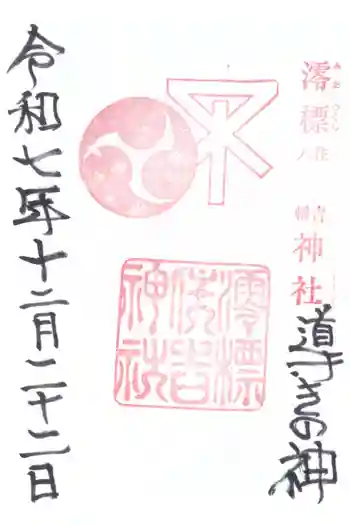 澪標
住吉
神社
澪標
住吉
神社
の神
令和七年十二月二十二日